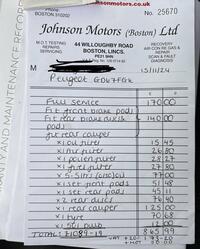 jnsonmotors.co.uk
Phone:
BOSTON 310202
No. 25670
Johnson Motors (Boston) Ltd
M.O.T. TESTING
REPAIRS
SERVICING
44 WILLOUGHBY ROAD
BOSTON, LINCS.
PE21 9HN
RECOVERY
AIR-CON RE-GAS &
REPAIR
SCAN & FAULT
DIAGNOSIS
M
13/11/24
Peugeot GD67FGK
£
Full service 170 00
Fit front brake pads
Fit rear brake disc &
pads 140 00
fit rear caliper
x1 oil filter 15 45
x1 air filter 26 80
x1 pollen filter 28 27
x1 fuel filter 27 80
77 00
x1 set front pads 51 48
x1 set rear pads 45 11
x2 rear discs 76 40
x1 rear caliper 125 00
x1 tyre 70 68
TOTAL: £1039-19
865 99
AND MAINTENANCE RECORD